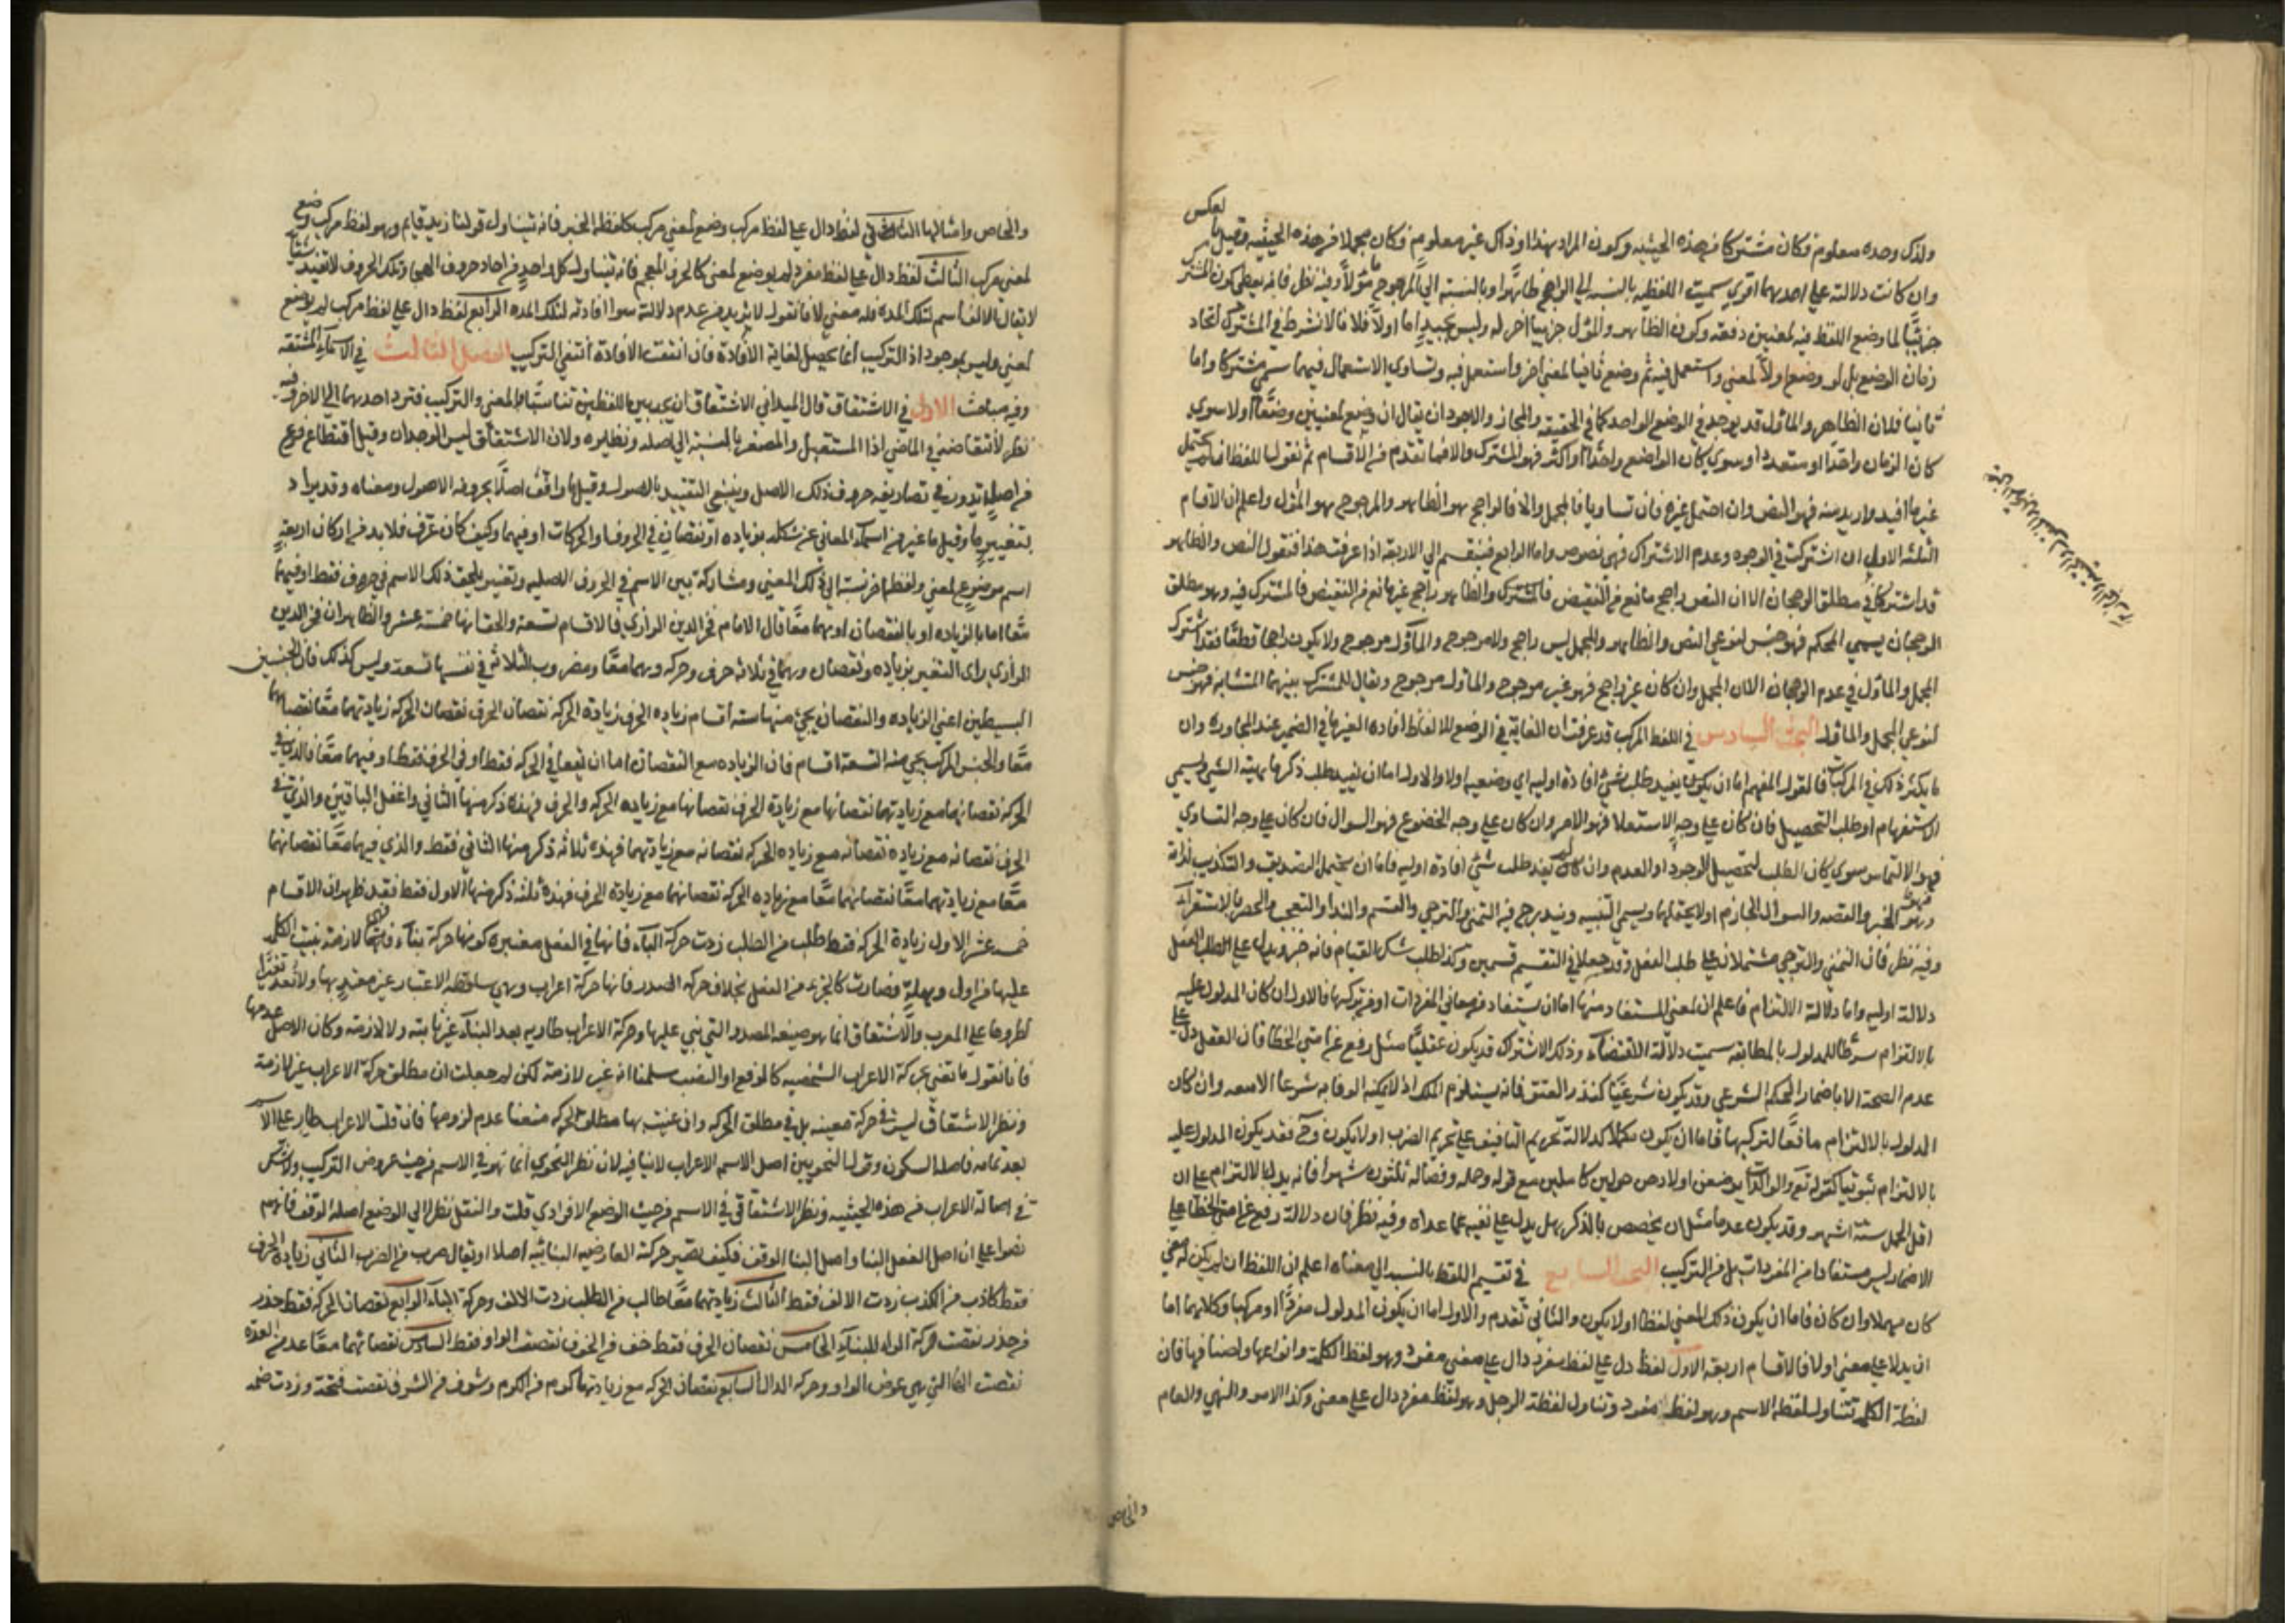 ولذلك وحده معلوم فكان مشتركا من هذه الحيثيه وكون المراد هذا او ذاك غير معلوم فكان مجملا من هذه الحيثيه وقيل بالعكس
وان كانت دلالته على احدهما اقوي سميت اللفظه بالنسبه الي الراجح ظاهرا وبالنسبه الي المرجوح مؤلا وفيه نظر فانه يعطي كون المشترك
جزئيا لما وضع اللفظ فيه لمعنيين دفعه وكون الظاهر والمؤل جزئيا اخر له وليس بجيد اما اولا فلانا لا نشرط في المشترك اتحاد
زمان الوضع بل لو وضع اولا لمعني واستعمل فيه ثم وضع ثانيا لمعني اخر واستعمل فيه وتساوي الاستعمال فيهما سمي مشتركا واما
ثانيا فلان الظاهر والمأول قد يوجد في الوضع الواحد كما في الحقيقه والمجاز والاجود ان يقال ان وضع لمعنيين وضعا اولا سوي
كان الزمان واحدا او متعددا وسوي كان الواضع واحدا او اكثر فهو المشترك والا فما تقدم من الاقسام ثم نقول اللفظ ان لم يحتمل
غير ما افيد واريد منه فهو النص وان احتمل غيره فان تساويا فالمجمل والا فالراجح هو الظاهر والمرجوح هو المؤل واعلم ان الاقسام
الثلثه الاول ان اشتركت في الوجوه وعدم الاشتراك فهي نصوص واما الرابع فينقسم الي الاربعه اذا عرفت هذا فنقول النص والظاهر
قد اشتركا في مطلق الرجحان الا ان النص راجح مانع من النقيض والظاهر راجح غير مانع من النقيض فالمشترك فيه وهو مطلق
الرجحان يسمي المحكم فهو جنس لنوعي النص والظاهر والمجمل ليس راجح ولا مرجوح والمأول مرجوح ولا يكون راجحا قطعا فقد اشترك
المجمل والمأول في عدم الرجحان الا ان المجمل وان كان غير راجح فهو غير مرجوح والمأول مرجوح ويقال للمشترك بينهما المتشابه فهو جنس
لنوعي المجمل والمأول البحث السادس في اللفظ المركب قد عرفت ان الغايه في الوضع للالفاظ افاده الغير ما في الضمير عند المحاوره وان
ما يكثر ذلك في المركبات فالقول المفهم اما ان يكون يفيد طلب شئ افادة اوليه اي وضعيه اولا والاول اما ان يفيد طلب ذكر ماهية الشئ ويسمي
الاستفهام او طلب التحصيل فان كان على وجه الاستعلا فهو الامر وان كان على وجه الخضوع فهو السوال فان كان على وجه التساوي
فهو الالتماس سوي كان الطلب لتحصيل الوجود او العدم وان كان لا يفيد طلب شئ افادة اوليه فاما ان يحتمل التصديق والتكذيب لذاته
وهو الخبر والقصه والسوال الجازم او لا يحتملهما ويسمي التنبيه ويندرج فيه التمني والترجي والقسم والندا والتعجب والحصر بالاستقراء
وفيه نظر فان التمني والترجي مشتملان على طلب الفعل وقد جعلا في التقسيم قسمين وكذا طلب منك القيام فانه خبر ويدل على طلب الفعل
دلالة اوليه واما دلالة الالتزام فاعلم ان المعني المستفاد منها اما ان يستفاد من معاني المفردات او من تركيبها فالاول ان كان المدلول عليه
بالالتزام شرطا للمدلول بالمطابقه سميت دلالة الاقتضاء وذلك الاشتراك قد يكون عقليا مثل رفع عن امتي الخطا فان العقل دل على
عدم الصحة الا باضمار الحكم الشرعي وقد يكون شرعيا كنذر العتق فانه يستلزم الملك اذ لا يمكنه الوفا به شرعا الا معه وان كان
المدلول بالالتزام مانعا لتركيبها فاما ان يكون مكملا كدلالة تحريم التافيف على تحريم الضرب او لا يكون وح فقد يكون المدلول عليه
بالالتزام ثبوتيا كقوله تع والوالدات يرضعن اولادهن حولين كاملين مع قوله وحمله وفصاله ثلثون شهرا فانه يدل بالالتزام على ان
اقل الحمل ستة اشهر وقد يكون عدميا مثل ان يخصص بالذكر هل يدل على نفيه عما عداه وفيه نظر فان دلالة رفع عن امتي الخطا على
الاضمار ليس مستفادا من المفردات بل من التركيب البحث السابع في تقسيم اللفظ بالنسبه الي معناه اعلم ان اللفظ ان لم يكن له معني
كان مهملا وان كان فاما ان يكون ذلك المعني لفظا اولا يكون والثاني تقدم والاول اما ان يكون المدلول مفردا او مركبا وكلاهما اما
ان يدلا على معني اولا فالاقسام اربعة الاول لفظ دل على لفظ مفرد دال على معني مفرد وهو لفظ الكلمة وانواعها واصنافها فان
لفظة الكلمة تتناول لفظة الاسم وهو لفظ مفرد وتناول لفظة الرجل وهو لفظ مفرد دال على معني وكذا الامر والنهي والعام
والخاص
والخاص وامثالها الثاني لفظ دال على لفظ مركب وضع لمعني مركب كلفظ الخبر فانه تتناول قولنا زيد قايم وهو لفظ مركب وضع
لمعني مركب الثالث لفظ دال على لفظ مفرد لم يوضع لمعني كالحرف المعجم فانه يتناول كل واحد من احاد حروف الهجا وتلك الحروف لا تفيد شيئا
لا يقال الالف اسم لتلك المده فله معني لانا نقول لا نريد من عدم دلالته سوا افادته لتلك المده الرابع لفظ دال على لفظ مركب لم يوضع
لمعني وليس بموجود اذ التركيب انما يحصل لغاية الافادة فان انتفت الافادة انتفي التركيب الفصل الثالث في الاسماء المشتقه
وفيه مباحث الاول في الاشتقاق قال الميداني الاشتقاق ان تجد بين اللفظين تناسبا في المعني والتركيب فترد احدهما الي الاخر وفيه
نظر لانتقاضه في الماضي اذا المستقبل والمصغر بالنسبة الي اصله ونظيره ولان الاشتقاق ليس الوجدان وقيل اقتطاع فرع
من اصل يدور في تصاريفه حروف ذلك الاصل وينبغي التقييد بالاصول وقيل ما وافق اصلا بحروفه الاصول ومعناه وقد يزاد
بتغيير ما وقيل ما غير من اسماء المعاني عن شكله بزياده او نقصان في الحروف او الحركات او فيهما وكيف كان عرف فلا بد من اركان اربعة
اسم موضوع لمعني ولفظ اخر نسبة الي ذلك المعني ومشاركة بين الاسم في الحروف الاصليه وتغيير يلحق ذلك الاسم في حرف فقط او فيهما
معا اما بالزياده او بالنقصان او بهما معا قال الامام فخر الدين الرازي فالاقسام تسعة والحق انها خمسة عشر والظاهر ان فخر الدين
الرازي راي التغيير بزياده ونقصان وبهما في ثلاثة حرف وحركه وبهما معا ومضروب الثلاثة في نفسها تسعة وليس كذلك فان الجنسين
البسيطين اعني الزياده والنقصان يجئ منهما ستة اقسام زياده الحرف زيادة الحركه نقصان الحرف نقصان الحركه زيادتهما معا نقصانهما
معا والجنس المركب يجي منه التسعة اقسام فان الزياده مع النقصان اما ان يقعا في الحركه فقط او في الحرف فقط او فيهما معا فالذي في
الحركه نقصانها مع زيادتها نقصانها مع زيادة الحرف نقصانها مع زياده الحركه والحرف فهذه ذكر منها الثاني واغفل الباقيين والذي في
الحرف نقصانه مع زياده نقصانه مع زياده الحركه نقصانه مع زيادتهما فهذه ثلاثه ذكر منها الثاني فقط والذي فيهما معا نقصانهما
معا مع زيادتهما معا نقصانهما معا مع زياده الحركه نقصانهما مع زيادة الحرف فهذه ثلثة ذكر منها الاول فقط فقد ظهر ان الاقسام
خمسه عشر الاول زيادة الحركه فقط طلب من الطلب زدت حركة الباء فانها في الفعل معتبره كونها حركة بناء لازمة بنيت الكلمه
عليها من اول وهلة فصارت كالجزء من الفعل بخلاف حركه المصدر فانها حركة اعراب وهي ساقطة الاعتبار غير معتد بها ولا تعد تغيرا
لطروها على المعرب والاشتقاق انما هو صيغه المصدر التي بني عليها وحركة الاعراب طاريه بعد البناء غير ثابته ولا لازمه وكان الاصل عدمها
فانا نقول ما تعني بحركة الاعراب الشخصيه كالرفع او النصب سلمنا انه غير لازمة لكن لم جعلت ان مطلق حركة الاعراب غير لازمة
ونظر الاشتقاق ليس في حركة معينه بل في مطلق الحركه وان عنيت بها مطلق الحركه منعنا عدم لزومها فان قلت الاعراب طار على الاسم
بعد تمامه فاصله السكون وقول النحويين اصل الاسم الاعراب لا ينافيه لان نظر النحوي انما هو في الاسم من حيث عروض التركيب ولا شك
في اصالة الاعراب من هذه الحيثيه ونظر الاشتقاقي في الاسم من حيث الوضع الافرادي قلت والفعل نظرا الي الوضع اصله الوقف فانهم
نصوا على ان اصل الفعل البنا واصل البنا الوقف فكيف تصير حركته العارضيه البنائيه اصلا او يقال ضرب من الضرب الثاني زيادة الحرف
فقط كاذب من الكذب زدت الالف فقط الثالث زيادتهما معا طالب من الطلب زدت الالف وحركة الباء الرابع نقصان الحركه فقط حذر
من حذر نقصت حركة الراء للبناء الخامس نقصان الحرف فقط خف من الخوف نقصت الواو فقط السادس نقصانهما معا عد من العدة
نقصت التاء التي هي عوض الواو وحركه الدال السابع نقصان الحركه مع زيادتها كرم من الكرم وشرف من الشرف نقصت فتحة وزدت ضمه